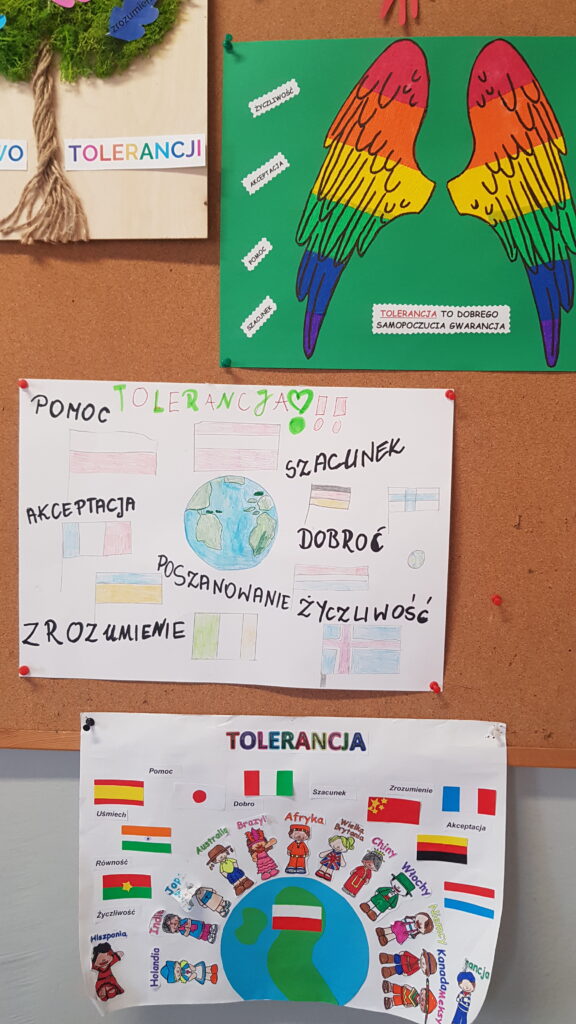 zrozumienie
WO
TOLERANCJI
ŻYCZLIWOŚĆ
AKCEPTACJA
POMOC
SZACUNEK
TOLERANCJA TO DOBREGO
SAMOPOCZUCIA GWARANCJA
TOLERANCJA!!!
POMOC
SZACUNEK
AKCEPTACJA
DOBROĆ
POSZANOWANIE
ŻYCZLIWOŚĆ
ZROZUMIENIE
TOLERANCJA
Pomoc
Uśmiech
Dobro
Szacunek
Zrozumienie
Akceptacja
Równość
Życzliwość
Hiszpania
Holandia
Indie
Australia
Brazylia
Afryka
Wielka
Brytania
Chiny
Włochy
Niemcy
Kanada
Meksyk